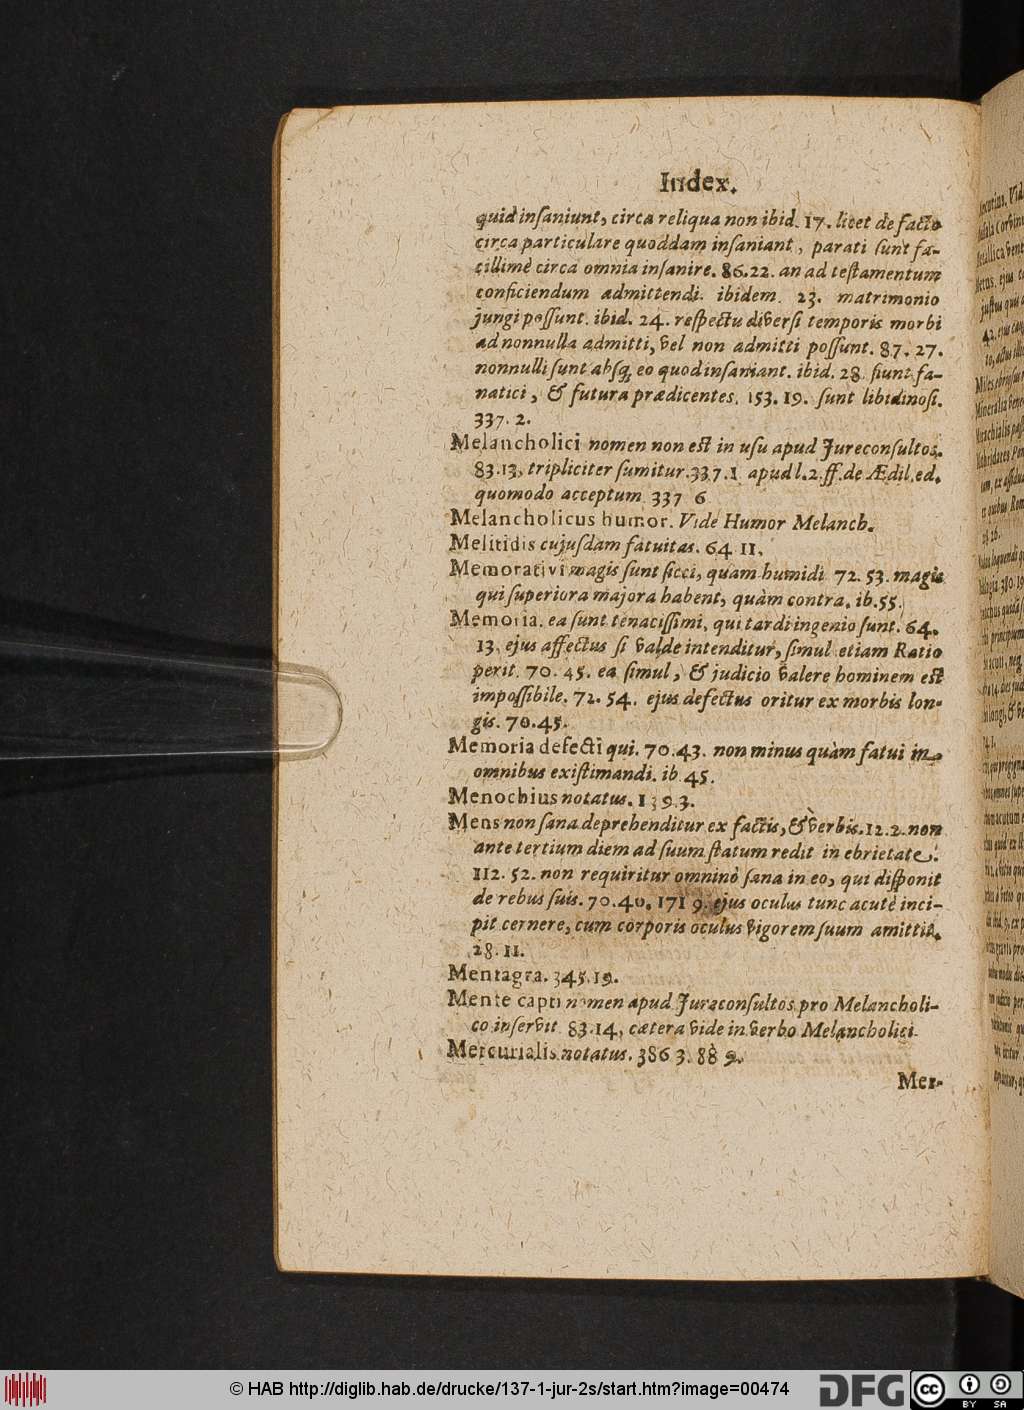 Index.
quid inſaniunt, circa reliqua non ibid. 17. licet de facto
circa particulare quoddam inſaniant, parati ſunt fa-
cillimè circa omnia inſanire. 86.22. an ad teſtamentum
conficiendum admittendi. ibidem 23. matrimonio
jungi poſſunt. ibid. 24. reſpectu diverſi temporis morbi
ad nonnulla admitti, vel non admitti poſſunt. 87. 27.
nonnulli ſunt abſq; eo quod inſaniant. ibid. 28 fiunt fa-
natici, & futura prædicentes. 153. 19. ſunt libidinoſi.
337. 2.
Melancholici nomen non eſt in uſu apud Jureconſultos.
83.13, tripliciter ſumitur. 337.1 apud l. 2. ff. de Ædil. ed.
quomodo acceptum 337 6
Melancholicus humor. Vide Humor Melanch.
Melitidis cujuſdam fatuitas. 64 11.
Memorativi magis ſunt ſicci, quam humidi 72. 53. magis
qui ſuperiora majora habent, quàm contra. ib. 55.
Memoria. ea ſunt tenaciſſimi, qui tardi ingenio ſunt. 64.
13. ejus affectus ſi valde intenditur, ſimul etiam Ratio
perit 70. 45. ea ſimul, & judicio valere hominem eſt
impoſſibile. 72. 54. ejus defectus oritur ex morbis lon-
gis. 70.45.
Memoria defecti qui. 70.43. non minus quàm fatui in
omnibus exiſtimandi. ib 45.
Menochius notatus. 139 3.
Mens non ſana deprehenditur ex factis, & verbis. 12.2. non
ante tertium diem ad ſuum ſtatum redit in ebrietate.
112. 52. non requiritur omninò ſana in eo, qui diſponit
de rebus ſuis. 70.40. 171 9. ejus oculus tunc acutè inci-
pit cernere, cum corporis oculus vigorem ſuum amittit.
28. 11.
Mentagra. 345.19.
Mente capti nomen apud Jureconſultos pro Melancholi-
co inſervit 83.14, cætera vide in verbo Melancholici.
Mercurialis notatus. 386 3. 88 9.
Mer-
© HAB http://diglib.hab.de/drucke/137-1-jur-2s/start.htm?image=00474
DFG
cc BY SA